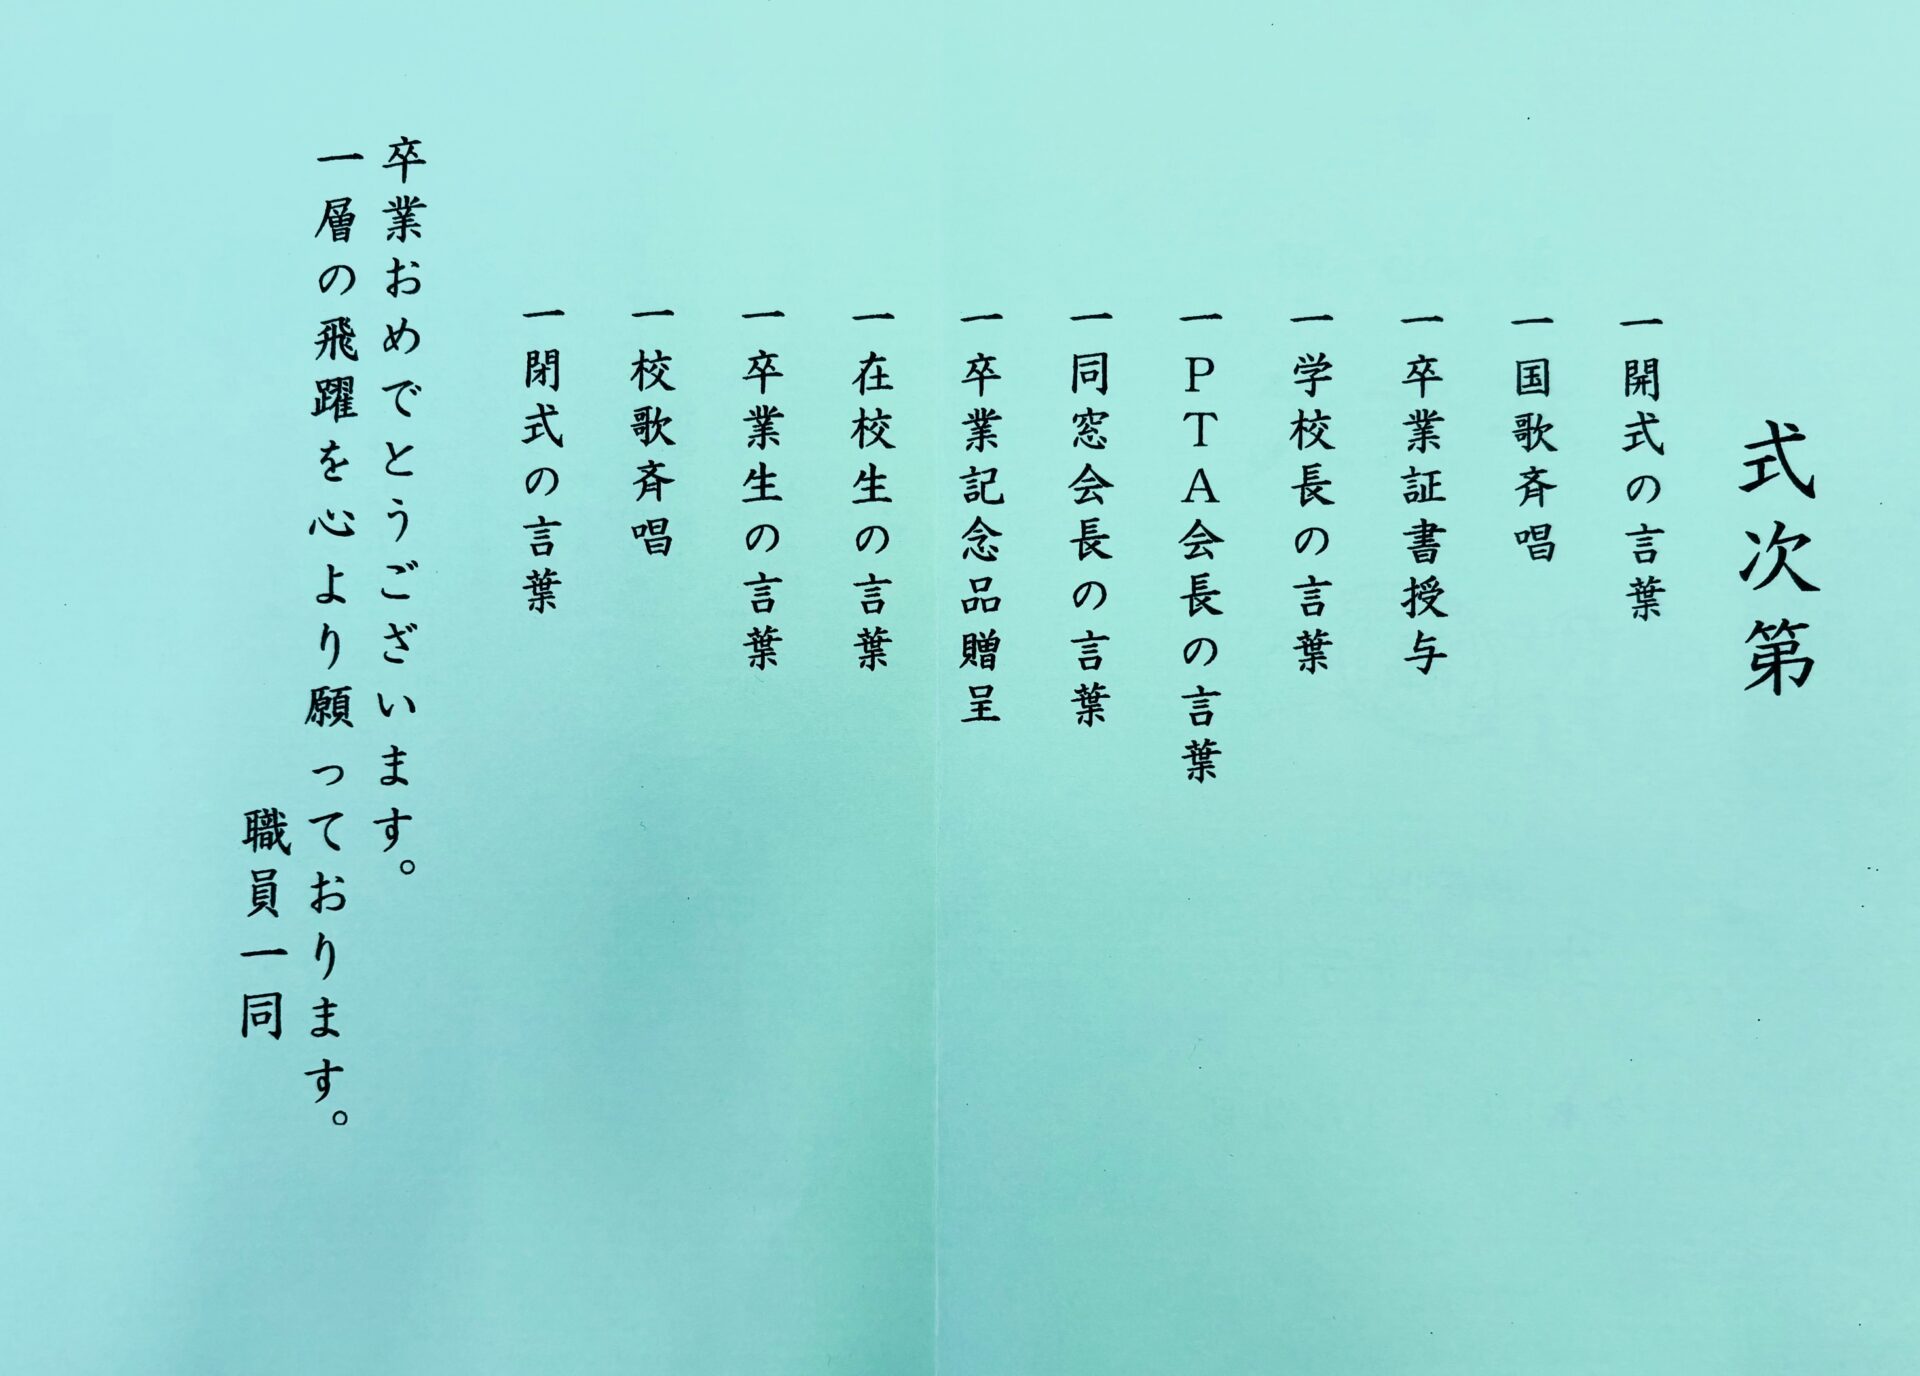 式次第
一 開式の言葉
一 国歌斉唱
一 卒業証書授与
一 学校長の言葉
一 PTA会長の言葉
一 同窓会長の言葉
一 卒業記念品贈呈
一 在校生の言葉
一 卒業生の言葉
一 校歌斉唱
一 閉式の言葉
卒業おめでとうございます。
一層の飛躍を心より願っております。
職員一同